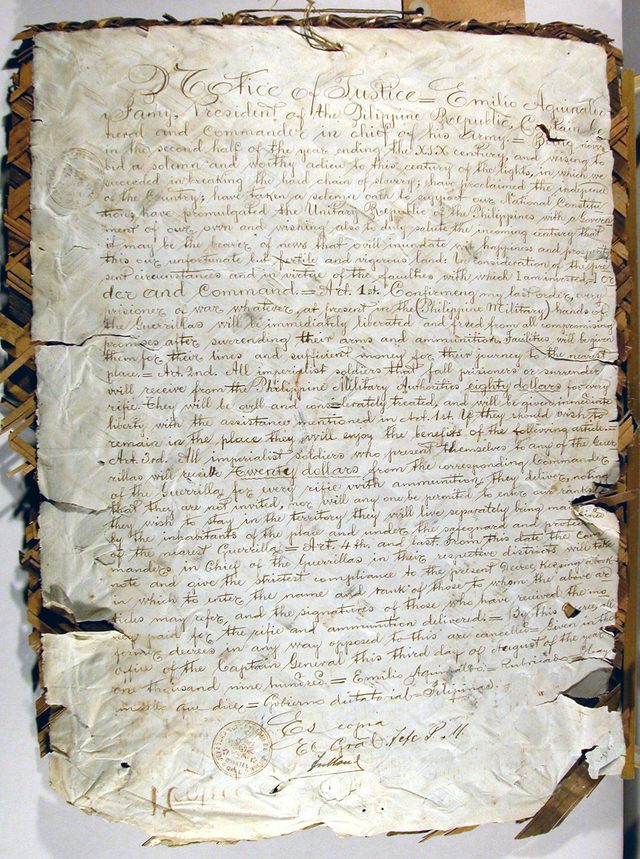 Notice of Justice = Emilio Aquinaldo
y Famy, President of the Pilippine Republic, Captain Ge
neral and Commander in chief of his Army. = Being now
in the second half of the year ending the XIX century, and wising to
bid a solemn and worthy adieu to this century of the lights, in which we
succeded in breaking the hard chain of slavery; have proclaimed the indepence
of the Country; have taken a solemn oath to support our National Constitu
tion; have promulgated the Unitary Republic of the Philippines with a Govern
ment of our own and wishing also to duly salute the incoming century that
it may be the bearer of news that will inundate wit happiness and prosperity
this our unfortunate but fertile and vigorous land: In consideration of the pre
sent circumstances and in virtue of the faculties with which I am invested, I or
der and Command. = Art. 1st. Confirmeng my last order, every
prisioner of war whatever, at present in the (Philippine Military) hands of
the Guerrillas will be immediately liberated and fried from all compromising
promises after surrending their arms and ammunition. Facilities will be given
them for their lines and sufficient money for their journey to the nearest
place. = Art. 2nd. All imperialist soldiers that fall prisioners or surrender
will receive from the Philippine Military Authorities eighty dollars for every
rifle. They will be well and considerately treated, and will be given immediate
liberty with the assistance mentioned in Art. 1st. If they should wish to
remain in the place they will enjoy the benefits of the following article. =
Art. 3rd. All imperialist soldiers who present themselves to any of the Guer
rillas will receive Twenty dollars from the corresponding Commander
of the Guerrilla for every rifle with ammunition they deliver, noting
that they are not invited, nor will any one be permited to enter our ranks. If
they wish to stay in the territory they will live separately being maintained
by the inhabitants of the place and under the safeguard and protection
of the nearest Guerrilla. = Art. 4th. and last. From this date the Com
manders in Chief of the Guerrillas in their respective districts will take
note and give the strictest compliance to the present Decree, Keeping a book
in which to enter the name and rank of those to whom the above ar
ticles may refer, and the signatures of those who have recived the mo
ney paid for the rifle and ammunition delivered. = By this decree,
former decrees in any way opposed to this are cancelled = Given in the
office of the Captain General this third day of August of the year
one thousand nine hundred. = Emilio Aquinaldo. = Publicado. Hay
un sello que dice, = Gobierno dictatorial = Filipinas.
Es copia
El Gral. Jefe P. M.